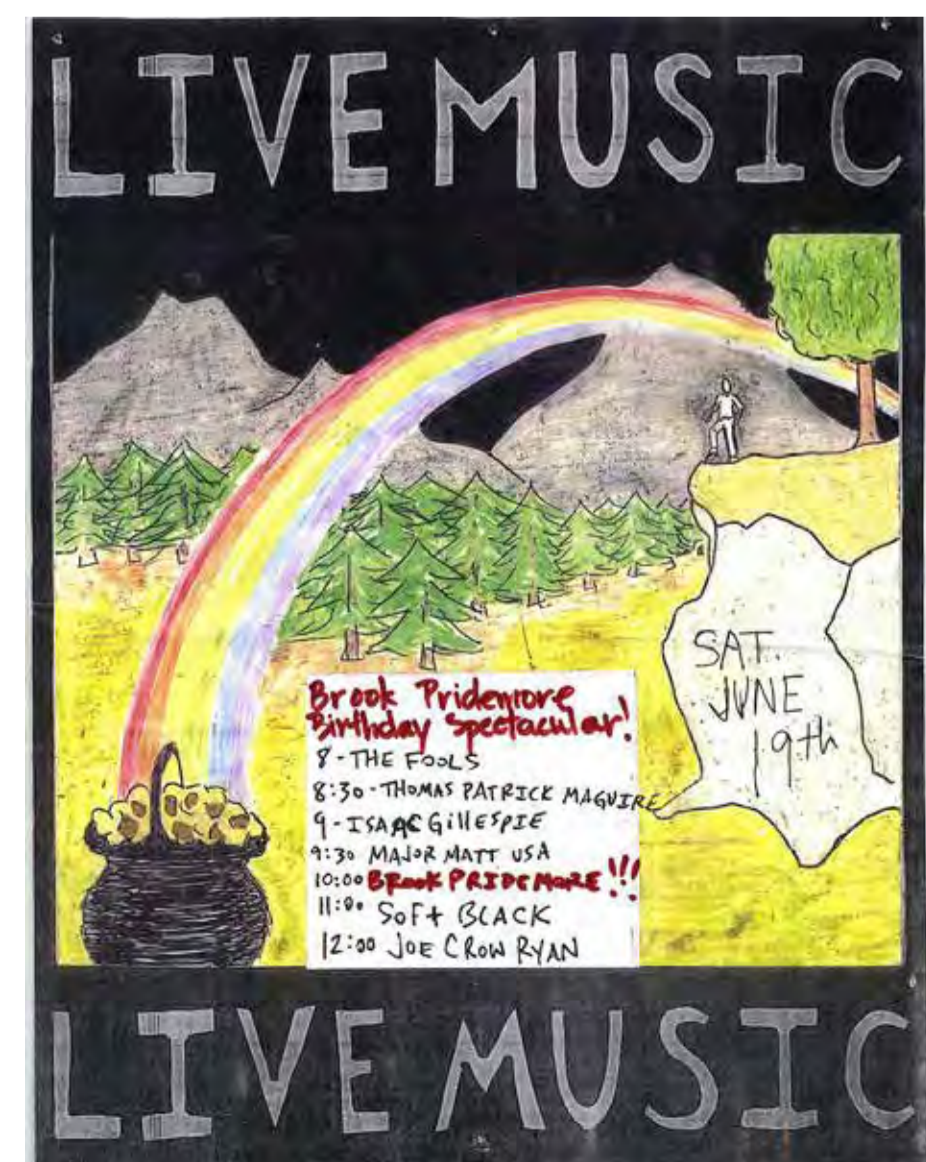 LIVE MUSIC
SAT.
JUNE
19th
Brook Pridemore
Birthday Spectacular!
8 - THE FOOLS
8:30 - THOMAS PATRICK MAGUIRE
9 - ISAAC GillESPIE
9:30 MAJOR MATT USA
10:00 BRook PRIDEMORE!!!
11:00 SoFt BLACK
12:00 JOE CROW RYAN
LIVE MUSIC